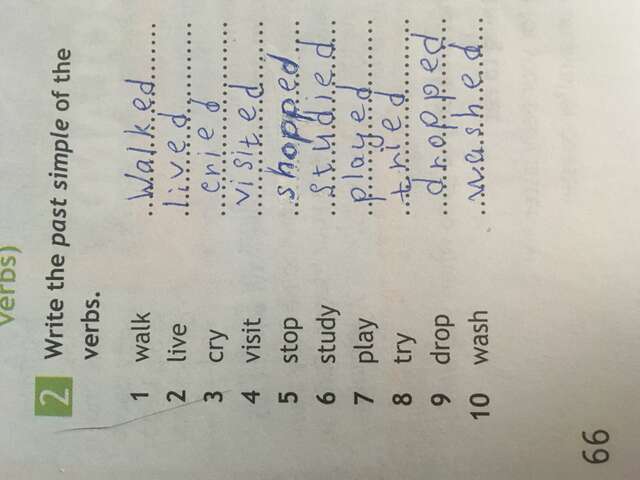 verbs)
2 Write the past simple of the
verbs.
1 walk Walked
2 live lived
3 cry cried
4 visit visited
5 stop shopped
6 study studied
7 play played
8 try tried
9 drop dropped
10 wash washed
66